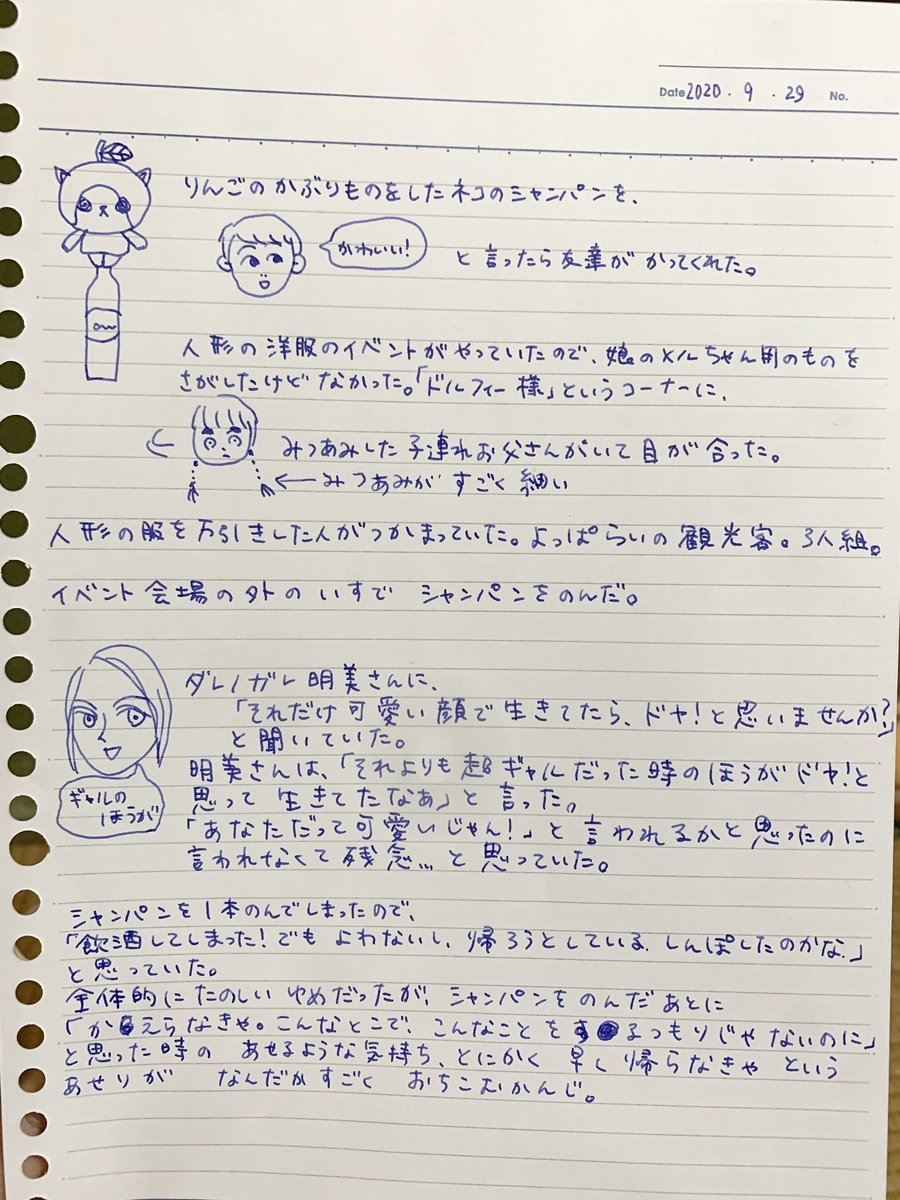 Date 2020 . 9 . 29 No.
りんごのかぶりものをしたネコのシャンパンを、
かわいい!
と言ったら友達がかってくれた。
人形の洋服のイベントがやっていたので、娘のメルちゃん用のものを
さがしたけどなかった。「ドルフィー様」というコーナーに、
みつあみした子連れお父さんがいて目が合った。
←みつあみがすごく細い
人形の服を万引きした人がつかまっていた。よっぱらいの観光客。3人組。
イベント会場の外のいすでシャンパンをのんだ。
ダレノガレ明美さんに、
「それだけ可愛い顔で生きてたら、ドヤ!と思いませんか?」
と聞いていた。
明美さんは、「それよりも超ギャルだった時のほうがドヤ!と
思って生きてたなぁ」と言った。
ギャルの
ほうが
「あなただって可愛いじゃん!」と言われるかと思ったのに
言われなくて残念…と思っていた。
シャンパンを1本のんでしまったので、
「飲酒してしまった!でもよわないし、帰ろうとしている。しんぽしたのかな。」
と思っていた。
全体的にたのしいゆめだったが、シャンパンをのんだあとに
「かえらなきゃ。こんなとこで、こんなことをするつもりじゃないのに」
と思った時のあせるような気持ち、とにかく早く帰らなきゃという
あせりがなんだかすごくおちこむかんじ。